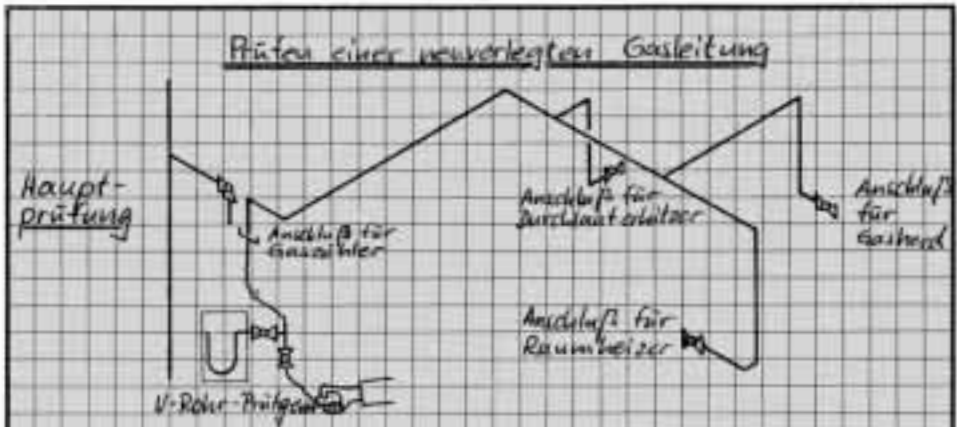 Prüfen einer neuverlegten Gasleitung
Haupt-
prüfung
Anschluß für
Gaszähler
Anschluß für
Durchlauferhitzer
Anschluß
für
Gasherd
Anschluß für
Raumheizer
U-Rohr-